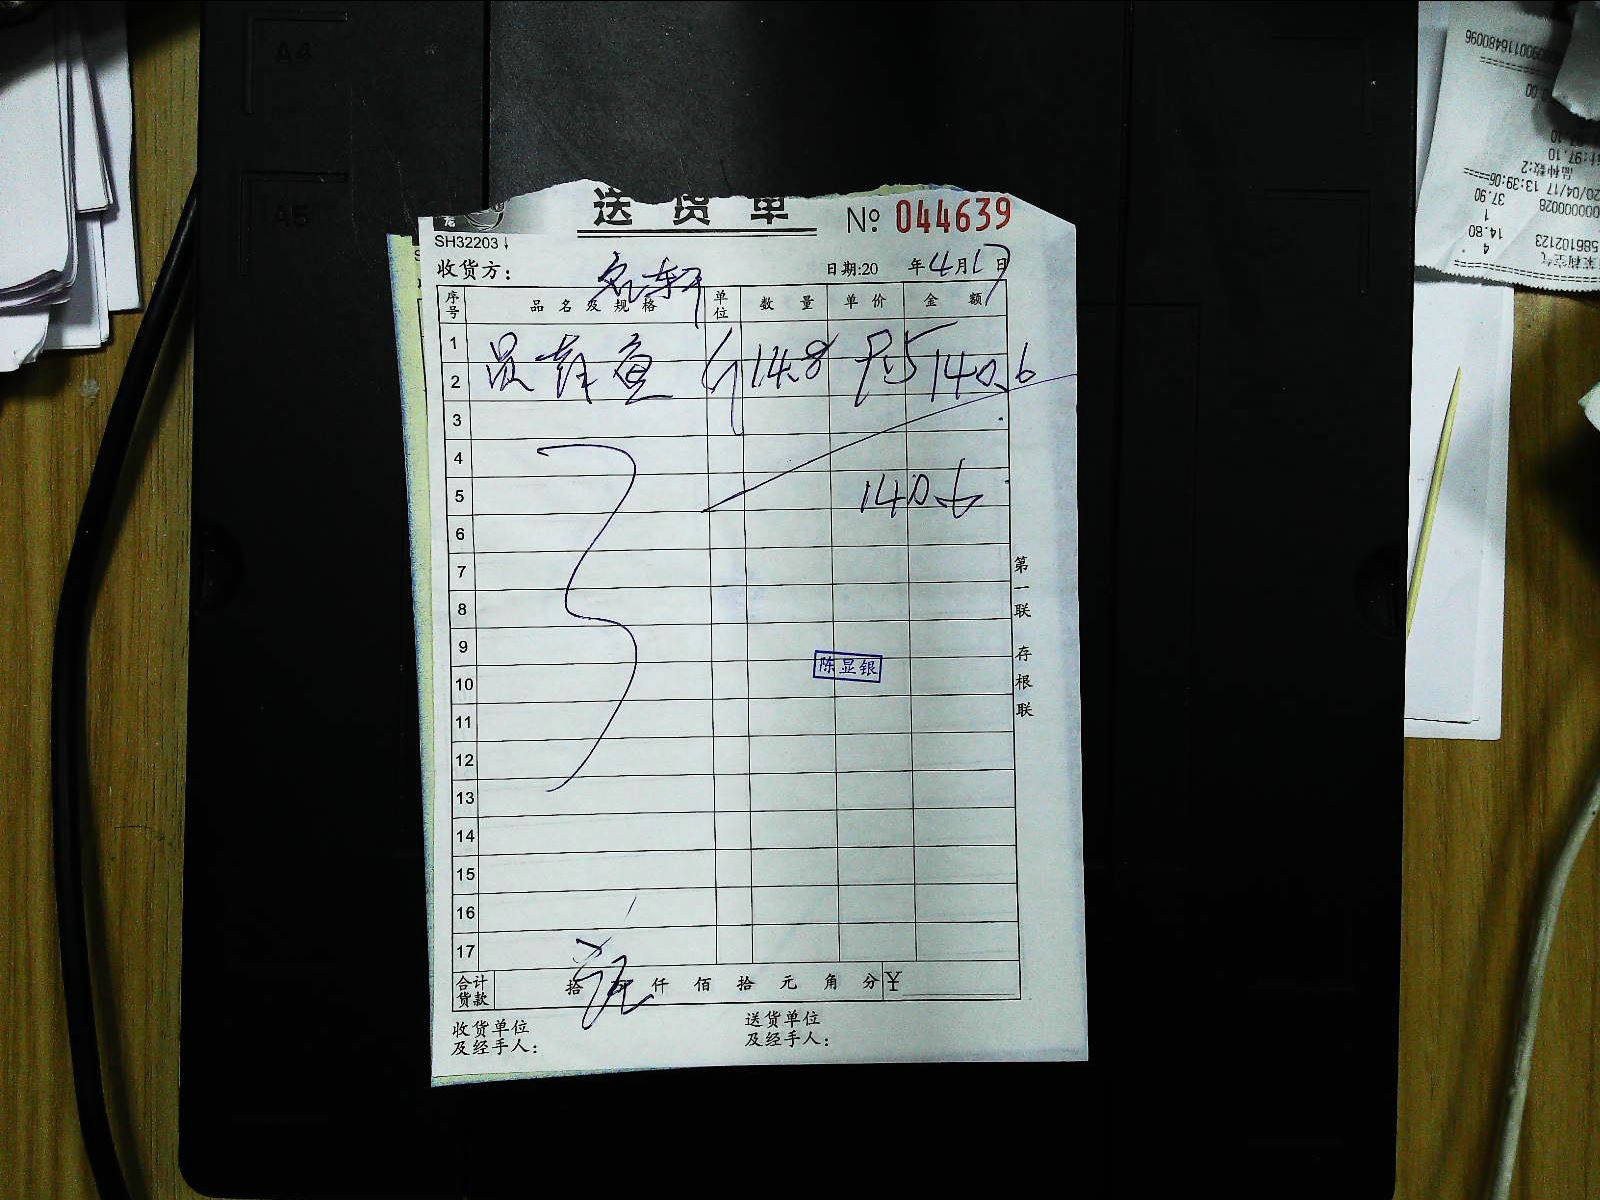 A4
A5
送货单 № 044639
SH32203
收货方： 名轩 日期:20 年4月17日
序号 品名及规格 单位 数量 单价 金额
1
2 鱼 斤 14.8 9.5 140.6
3
4
5 140.6
6
7
8
9
10 陈显银
11
12
13
14
15
16
17
合计货款 拾 仟 佰 拾 元 角 分 ¥
收货单位 送货单位
及经手人： 及经手人：
第一联 存根联
20/04/17 13:39:06
品种数:2
:97.10
37.90
1
14.80
4
5861022123